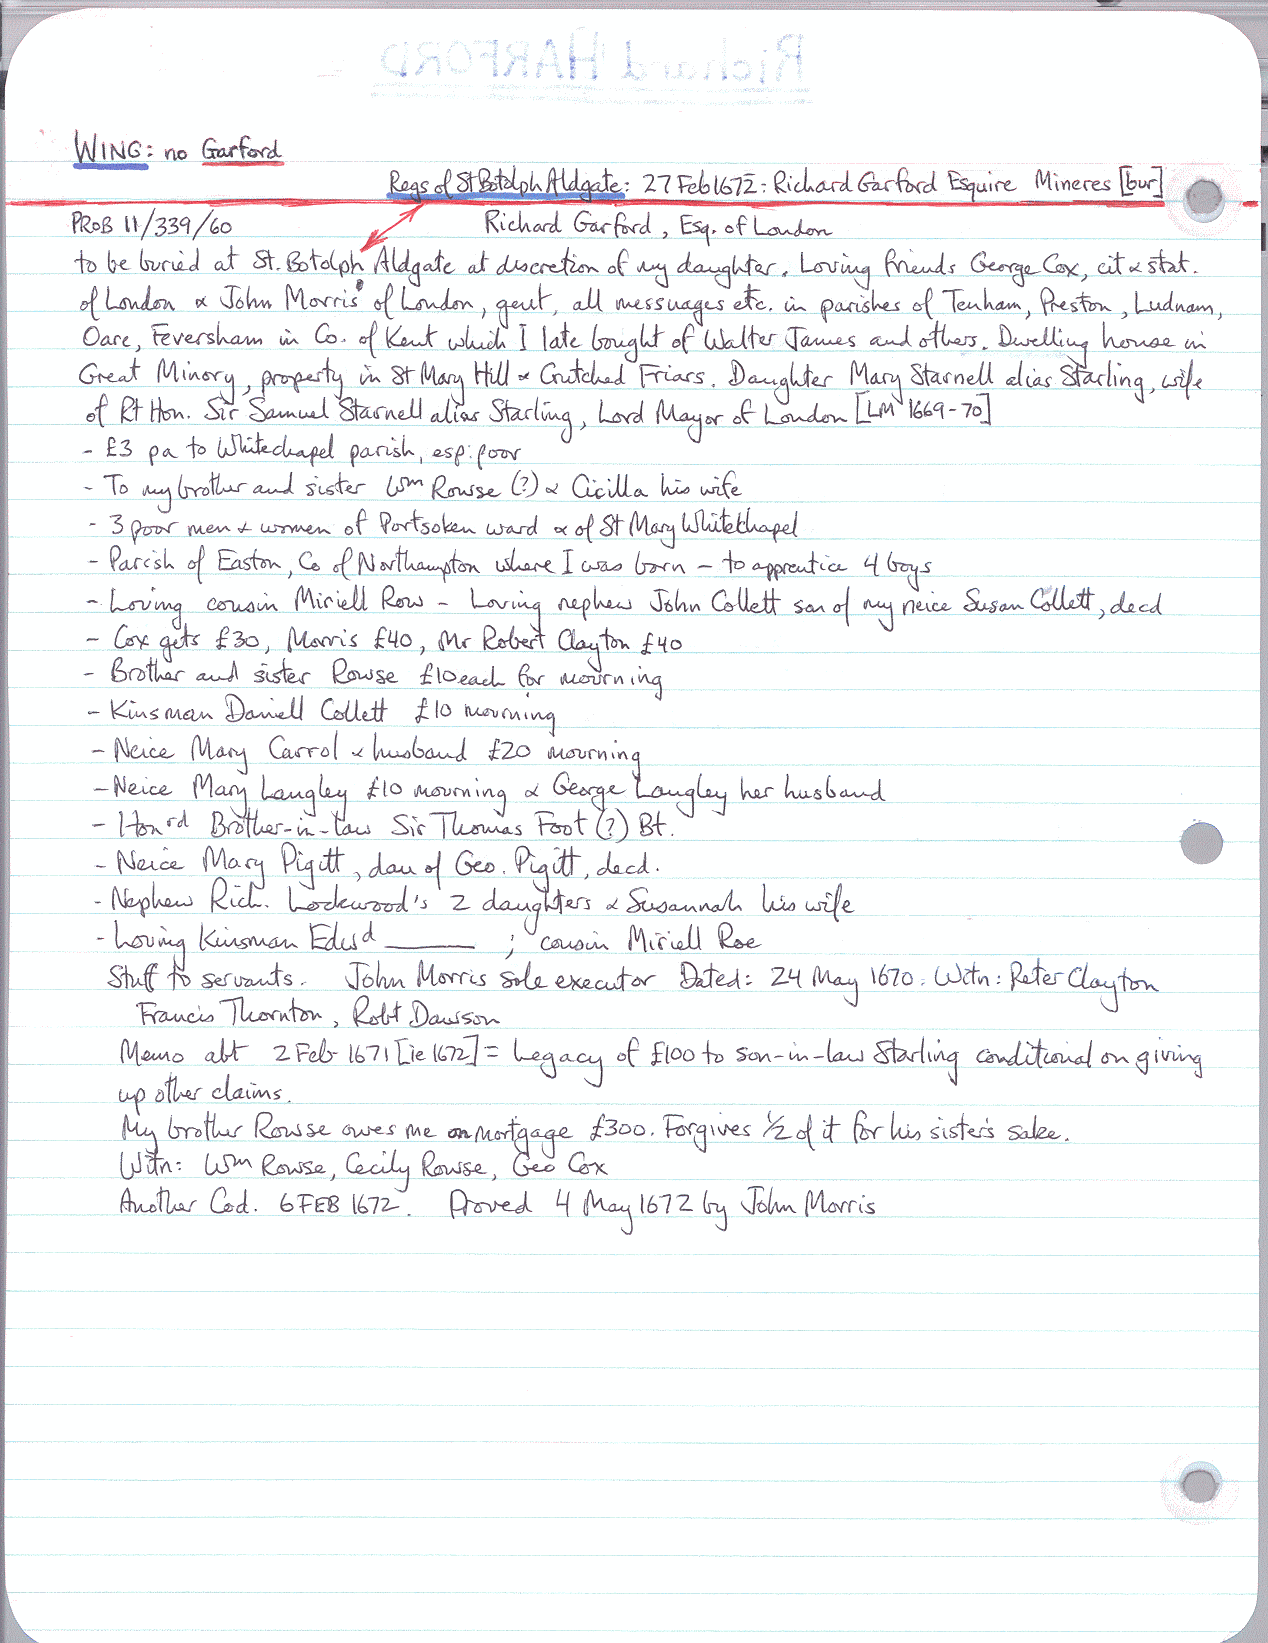 Richard HARFORD
WING: no Garford
Regs of St Botolph Aldgate: 27 Feb 1672: Richard Garford Esquire Mineres [bur]
PROB 11/339/60 Richard Garford, Esq. of London
to be buried at St. Botolph Aldgate at discretion of my daughter. Loving friends George Cox, cit & stat.
of London & John Morris of London, gent, all messuages etc. in parishes of Tenham, Preston, Ludnam,
Oare, Feversham in Co. of Kent which I late bought of Walter James and others. Dwelling house in
Great Minory, property in St Mary Hill & Crutched Friars. Daughter Mary Starnell alias Starling, wife
of Rt Hon. Sir Samuel Starnell alias Starling, Lord Mayor of London [LM 1669-70]
- £3 pa to Whitechapel parish, esp. poor
- To my brother and sister Wm Rowse (?) & Cicilla his wife
- 3 poor men & women of Portsoken ward & of St Mary Whitechapel
- Parish of Easton, Co of Northampton where I was born - to apprentice 4 boys
- Loving cousin Miriell Row - Loving nephew John Collett son of my neice Susan Collett, decd
- Cox gets £30, Morris £40, Mr Robert Clayton £40
- Brother and sister Rowse £10 each for mourning
- Kinsman Daniell Collett £10 mourning
- Neice Mary Carrol & husband £20 mourning
- Neice Mary Langley £10 mourning & George Langley her husband
- Honrd Brother-in-law Sir Thomas Foot (?) Bt.
- Neice Mary Pigitt, dau of Geo. Pigitt, decd.
- Nephew Rich. Lockwood's 2 daughters & Susannah his wife
- Loving Kinsman Edwd ______ ; cousin Miriell Roe
Stuff to servants. John Morris sole executor Dated: 24 May 1670. Witn: Peter Clayton
Francis Thornton, Robt Dawson
Memo abt 2 Feb 1671 [ie 1672] = Legacy of £100 to son-in-law Starling conditional on giving
up other claims.
My brother Rowse owes me on mortgage £300. Forgives 1/2 of it for his sister's sake.
Witn: Wm Rowse, Cecily Rowse, Geo Cox
Another Cod. 6 FEB 1672. Proved 4 May 1672 by John Morris